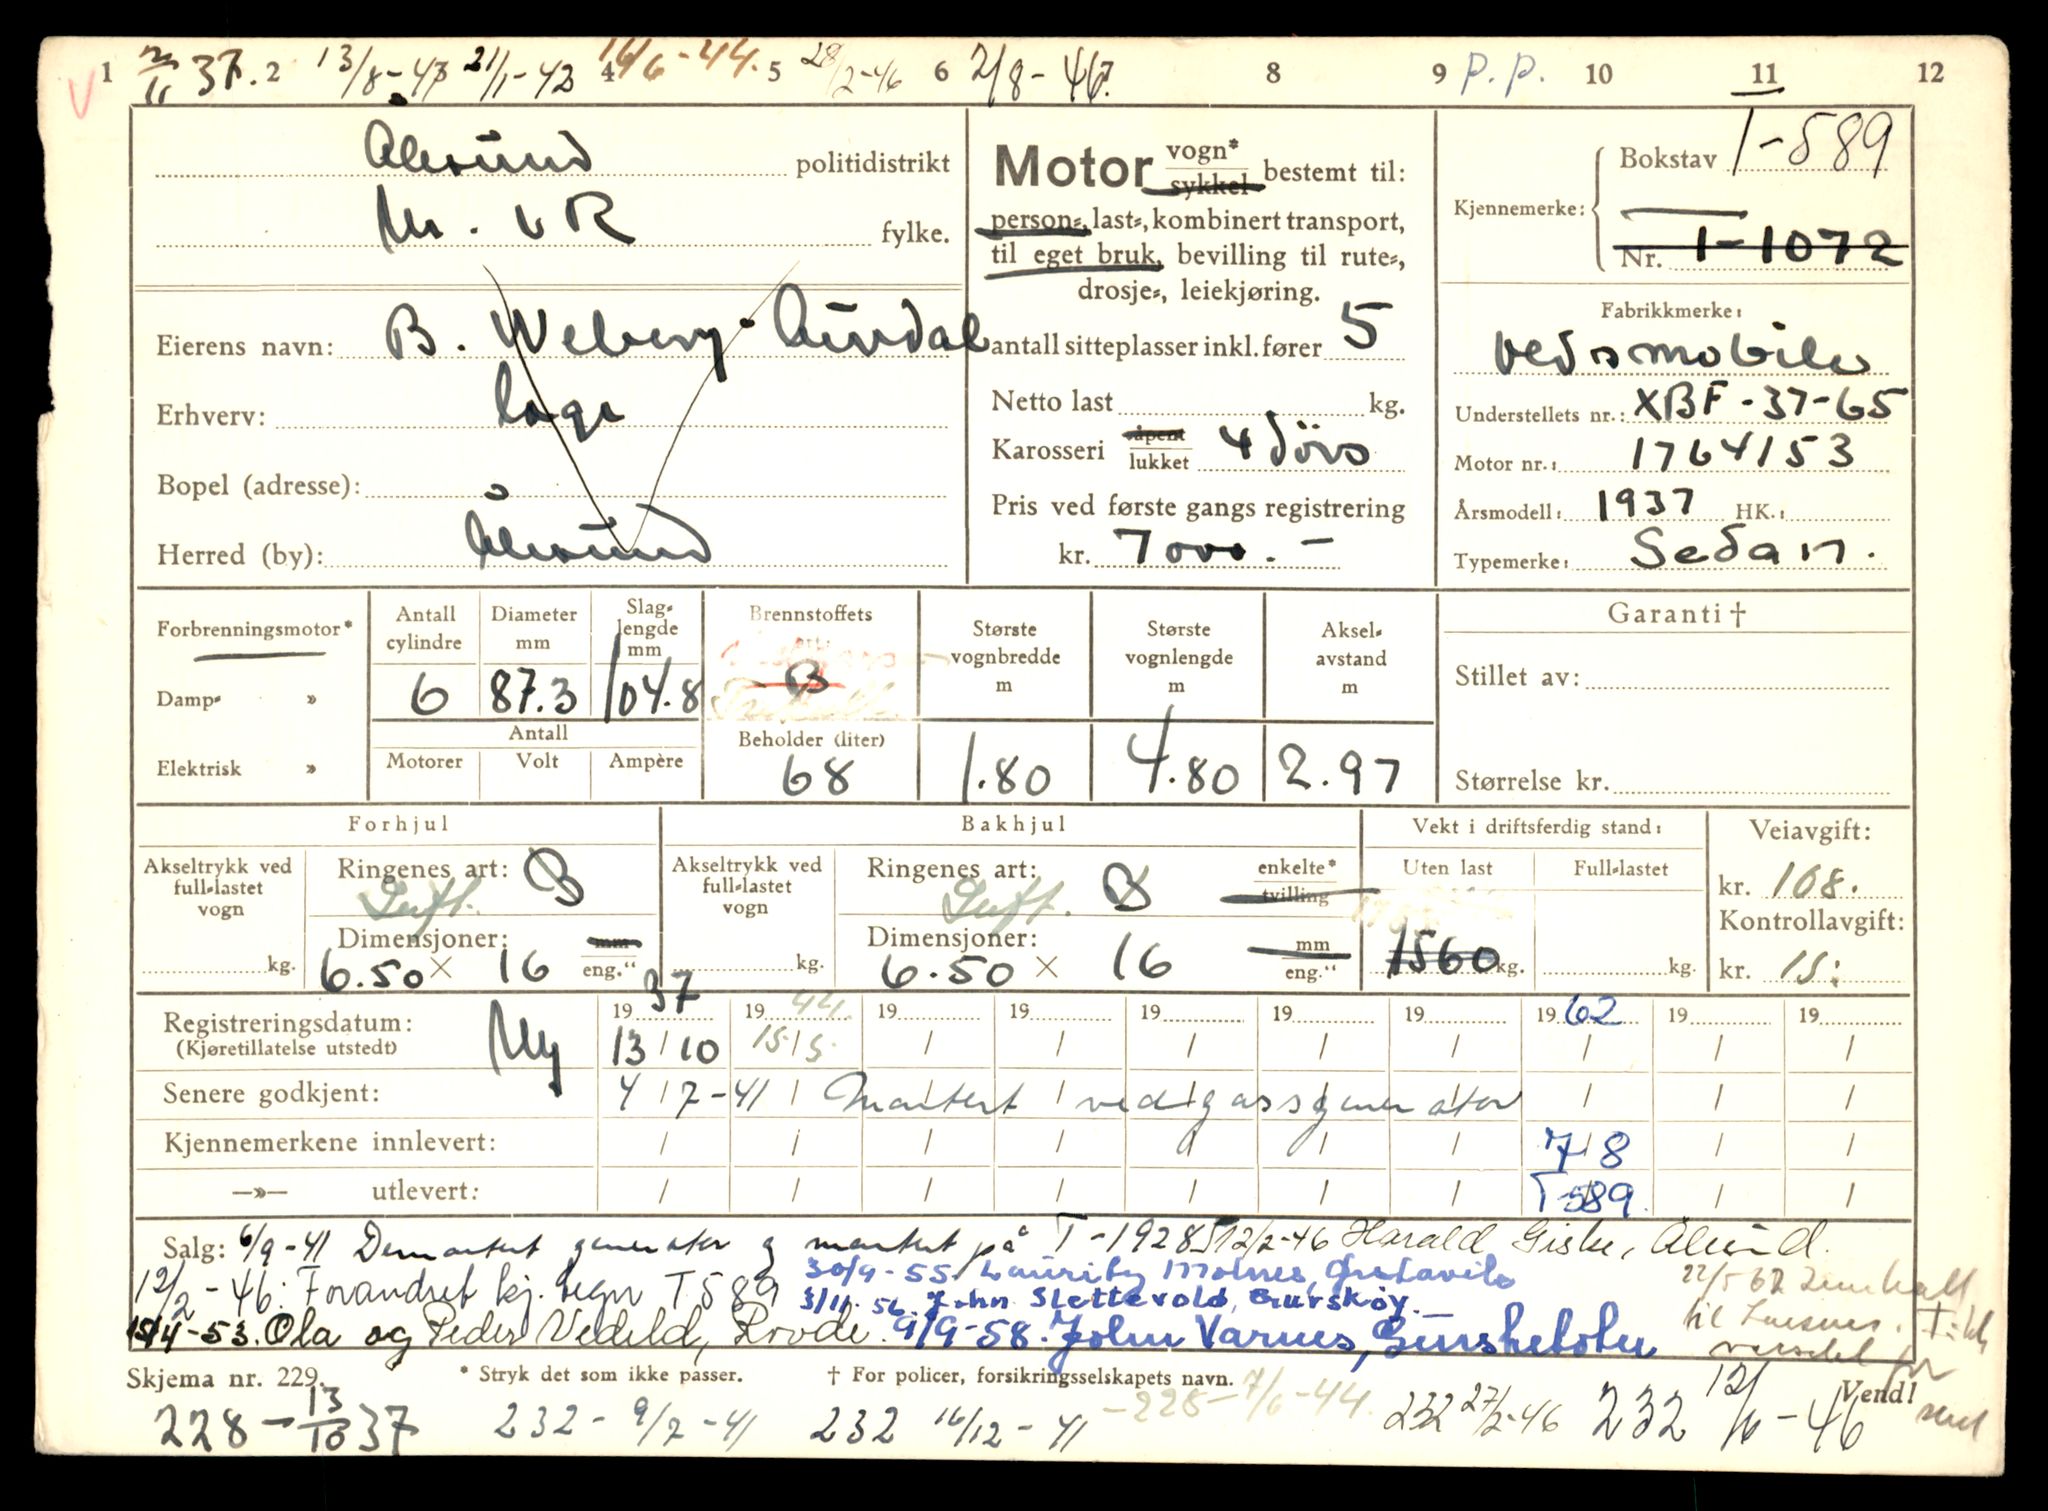 1 2 4 5 6 8 9 p.p. 10 11 12
V 37. 13/8-43 21/1-43 16/6-44. 28/2-46 2/8-46.
Ålesund politidistrikt
M. o R fylke.
Eierens navn: B. Weberg Aurdal
Erhverv: Læge
Bopel (adresse):
Herred (by): Ålesund
Motor vogn* sykkel bestemt til:
person-, last-, kombinert transport,
til eget bruk, bevilling til rute-,
drosje-, leiekjøring.
antall sitteplasser inkl. fører 5
Netto last kg.
Karosseri åpent lukket 4 dörs
Pris ved første gangs registrering
kr. 7000.-
Kjennemerke: Bokstav T-589
Nr. T-1072
Fabrikkmerke:
Oldsmobile
Understellets nr.: XBF-37-65
Motor nr.: 1764153
Årsmodell: 1937 HK.:
Typemerke: Sedan.
Forbrenningsmotor*
Damp- »
Elektrisk »
Antall cylindre 6
Diameter mm 87.3
Slag-lengde mm 104.8
Antall
Motorer Volt Ampère
Brennstoffets art: B
Beholder (liter) 68
Største vognbredde m 1.80
Største vognlengde m 4.80
Aksel-avstand m 2.97
Garanti †
Stillet av:
Størrelse kr.
Forhjul
Akseltrykk ved full-lastet vogn kg.
Ringenes art: B
Luft.
Dimensjoner: mm
6.50 × 16 eng."
Bakhjul
Akseltrykk ved full-lastet vogn kg.
Ringenes art: B enkelte* tvilling
Luft.
Dimensjoner: mm
6.50 × 16 eng."
Vekt i driftsferdig stand:
Uten last Full-lastet
1560 kg. kg.
Veiavgift:
kr. 108.
Kontrollavgift:
kr. 15:
Registreringsdatum: Ny 19 37 19 44. 19 19 19 19 19 19 62 19 19
(Kjøretillatelse utstedt) 13/10 15/5.
Senere godkjent: 4/7-41 Montert vedgassgenerator
Kjennemerkene innlevert: 7/8
—»— utlevert: T-589.
Salg: 6/9-41 Demontert generator og montert på T-1928 12/2-46 Harald Giske, Ålesund.
12/2-46: Forandret kj. tegn T 589 30/9-55. Lauritz Molnes, Ørstavik
3/11.56. John Slettevold, Gurskøy.
15/4-53. Ola og Peder Vedeld, Rovde. 9/9-58. John Varnes, Gurskebotn
22/5 62
til
Skjema nr. 229. * Stryk det som ikke passer. † For policer, forsikringsselskapets navn. Vend!
228-13/10 37 232-9/7-41 232 16/12-41 -228-7/6-44. 232 27/2-46 232 12/6-46